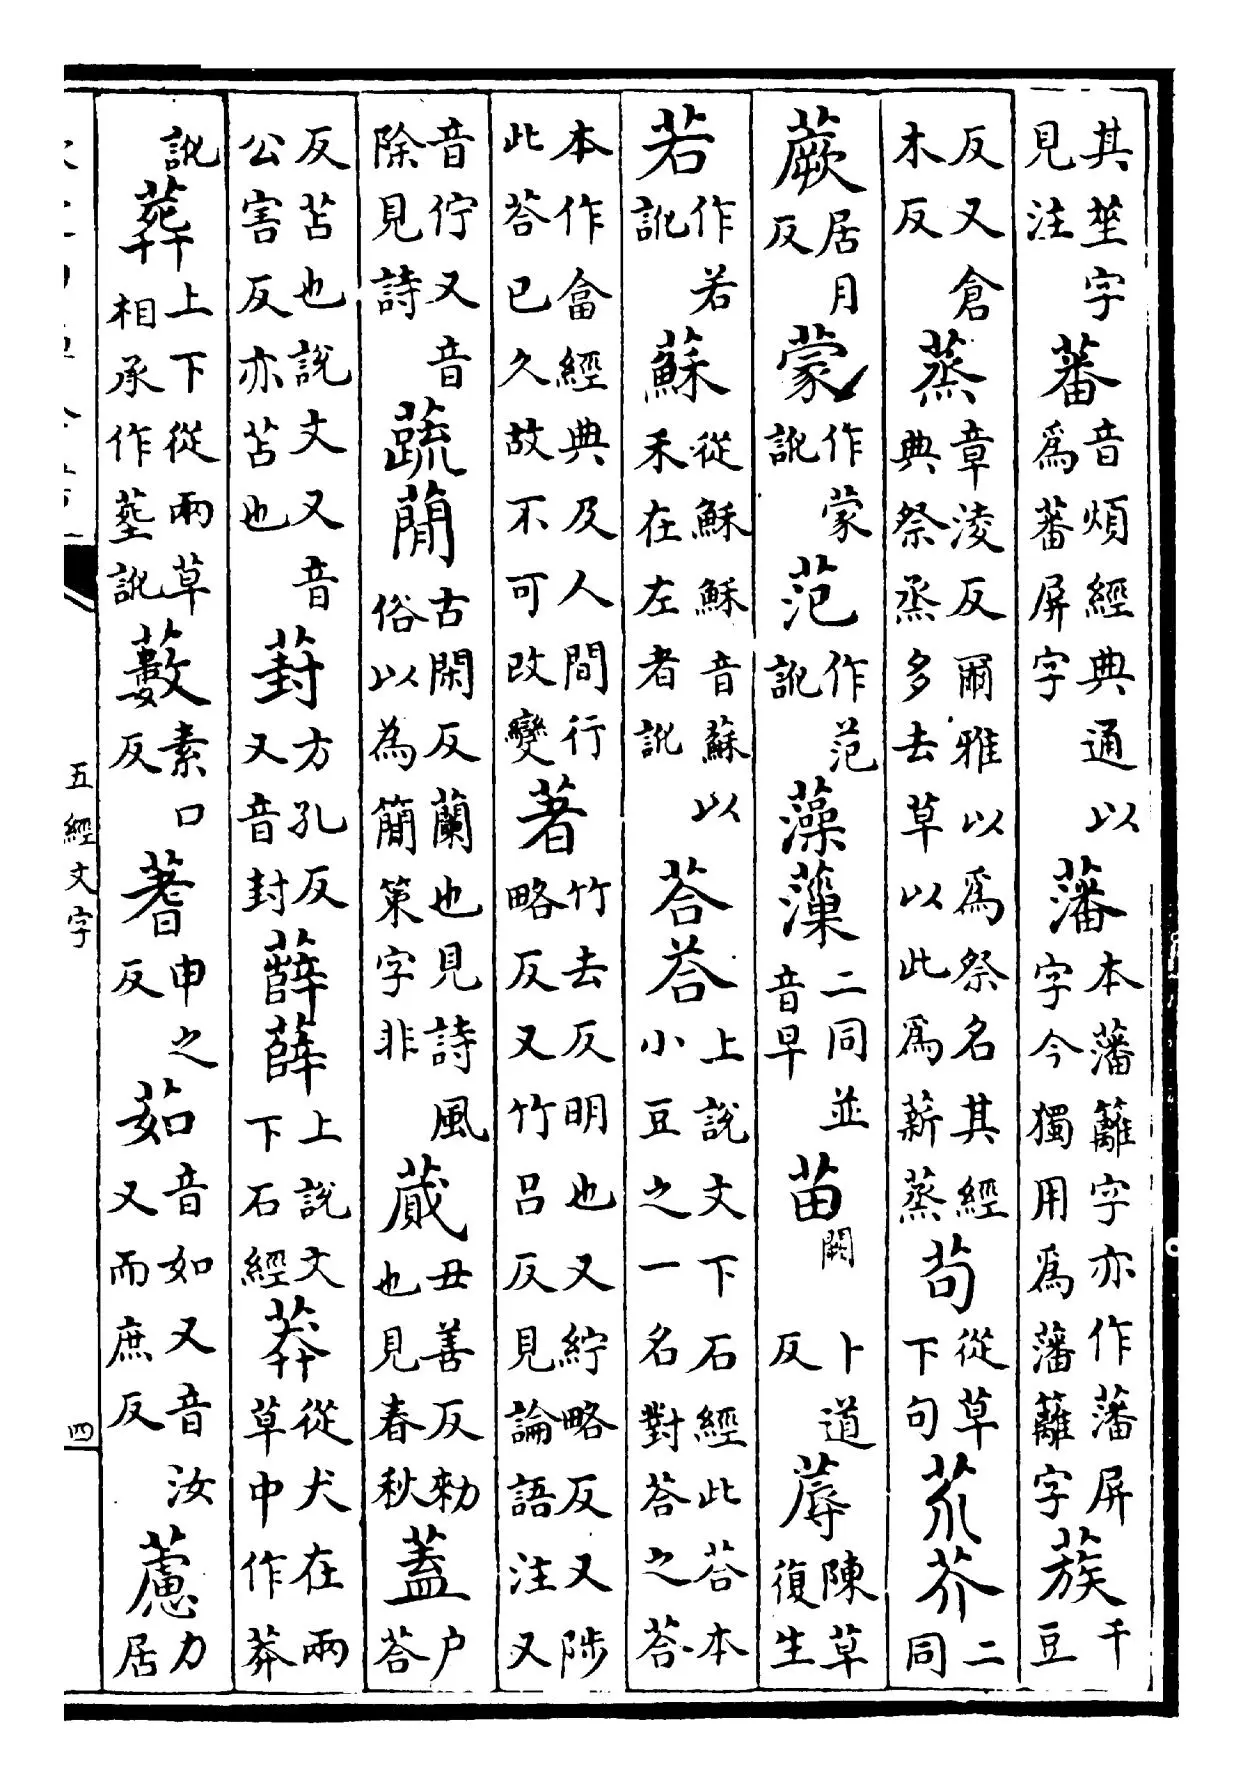 其莝字見注蕃音煩經典通以爲蕃屏字藩本藩籬字亦作藩屏字今獨用爲藩籬字蔟千豆
反又倉木反蒸章淩反爾雅以爲祭名其經典祭烝多去草以此爲薪蒸苟從草下句芥二同
蕨居月反蒙作蒙訛范作范訛藻薻二同並音早苗闕卜道反蓐陳草復生
若作若訛蘇從穌穌音蘇以禾在左者訛荅荅上說文下石經此荅本小豆之一名對荅之荅
本作畣經典及人間行此荅已久故不可改變著竹去反明也又紵略反又陟略反又竹呂反見論語注又
音佇又音除見詩蔬蕑古閑反蘭也見詩風俗以為簡策字非蕆丑善反勑也見春秋蓋户荅
反苫也說文又音公害反亦苫也葑方孔反又音封薛上說文下石經莽從犬在兩草中作莾
訛葬上下從兩草相承作塟訛藪素口反蓍申之反茹音如又音汝又而庶反藘力居
五經文字
四